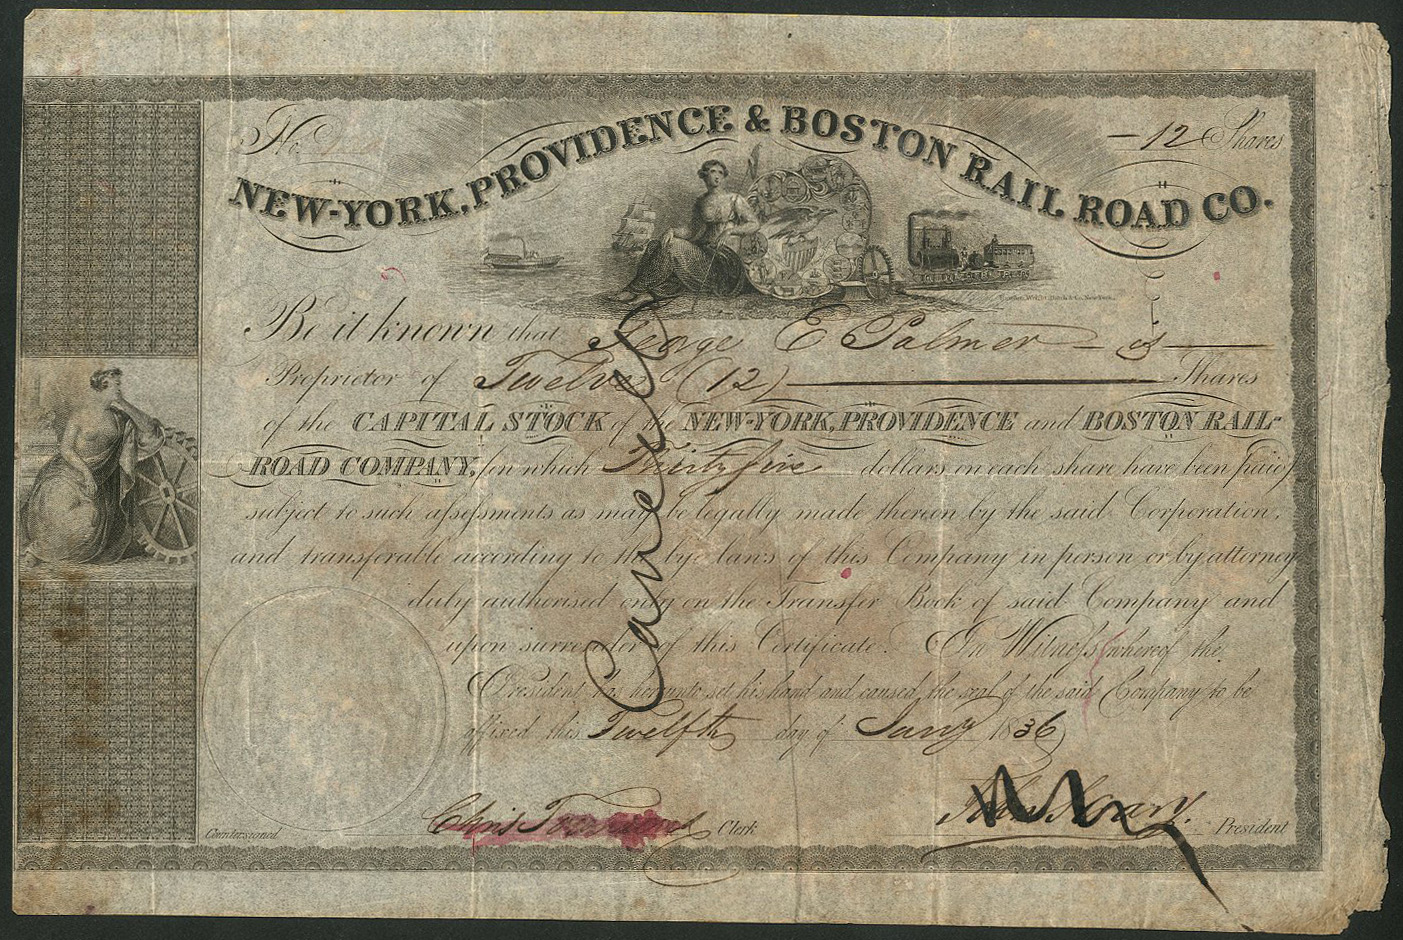 No.
— 12 Shares
NEW-YORK, PROVIDENCE & BOSTON RAIL ROAD CO.
Be it known that George E Palmer is
Proprietor of Twelve (12) Shares
of the CAPITAL STOCK of the NEW-YORK, PROVIDENCE and BOSTON RAIL-
ROAD COMPANY, on which Thirty five dollars on each share have been paid
subject to such assessments as may be legally made thereon by the said Corporation,
and transferable according to the bye laws of this Company in person or by attorney
duly authorised only on the Transfer Book of said Company and
upon surrender of this Certificate. In Witness whereof the
President has hereunto set his hand and caused the seal of the said Company to be
affixed this Twelfth day of Jany 1836
Cancelled
Countersigned Chris Clerk
John President